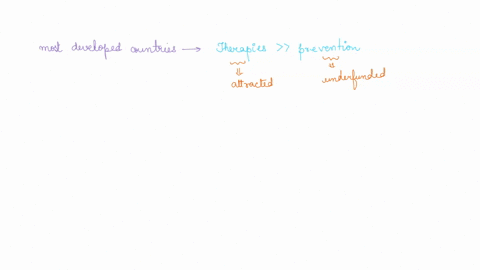 most developed countries → Therapies >> prevention
⇓ ⇓
attracted underfunded